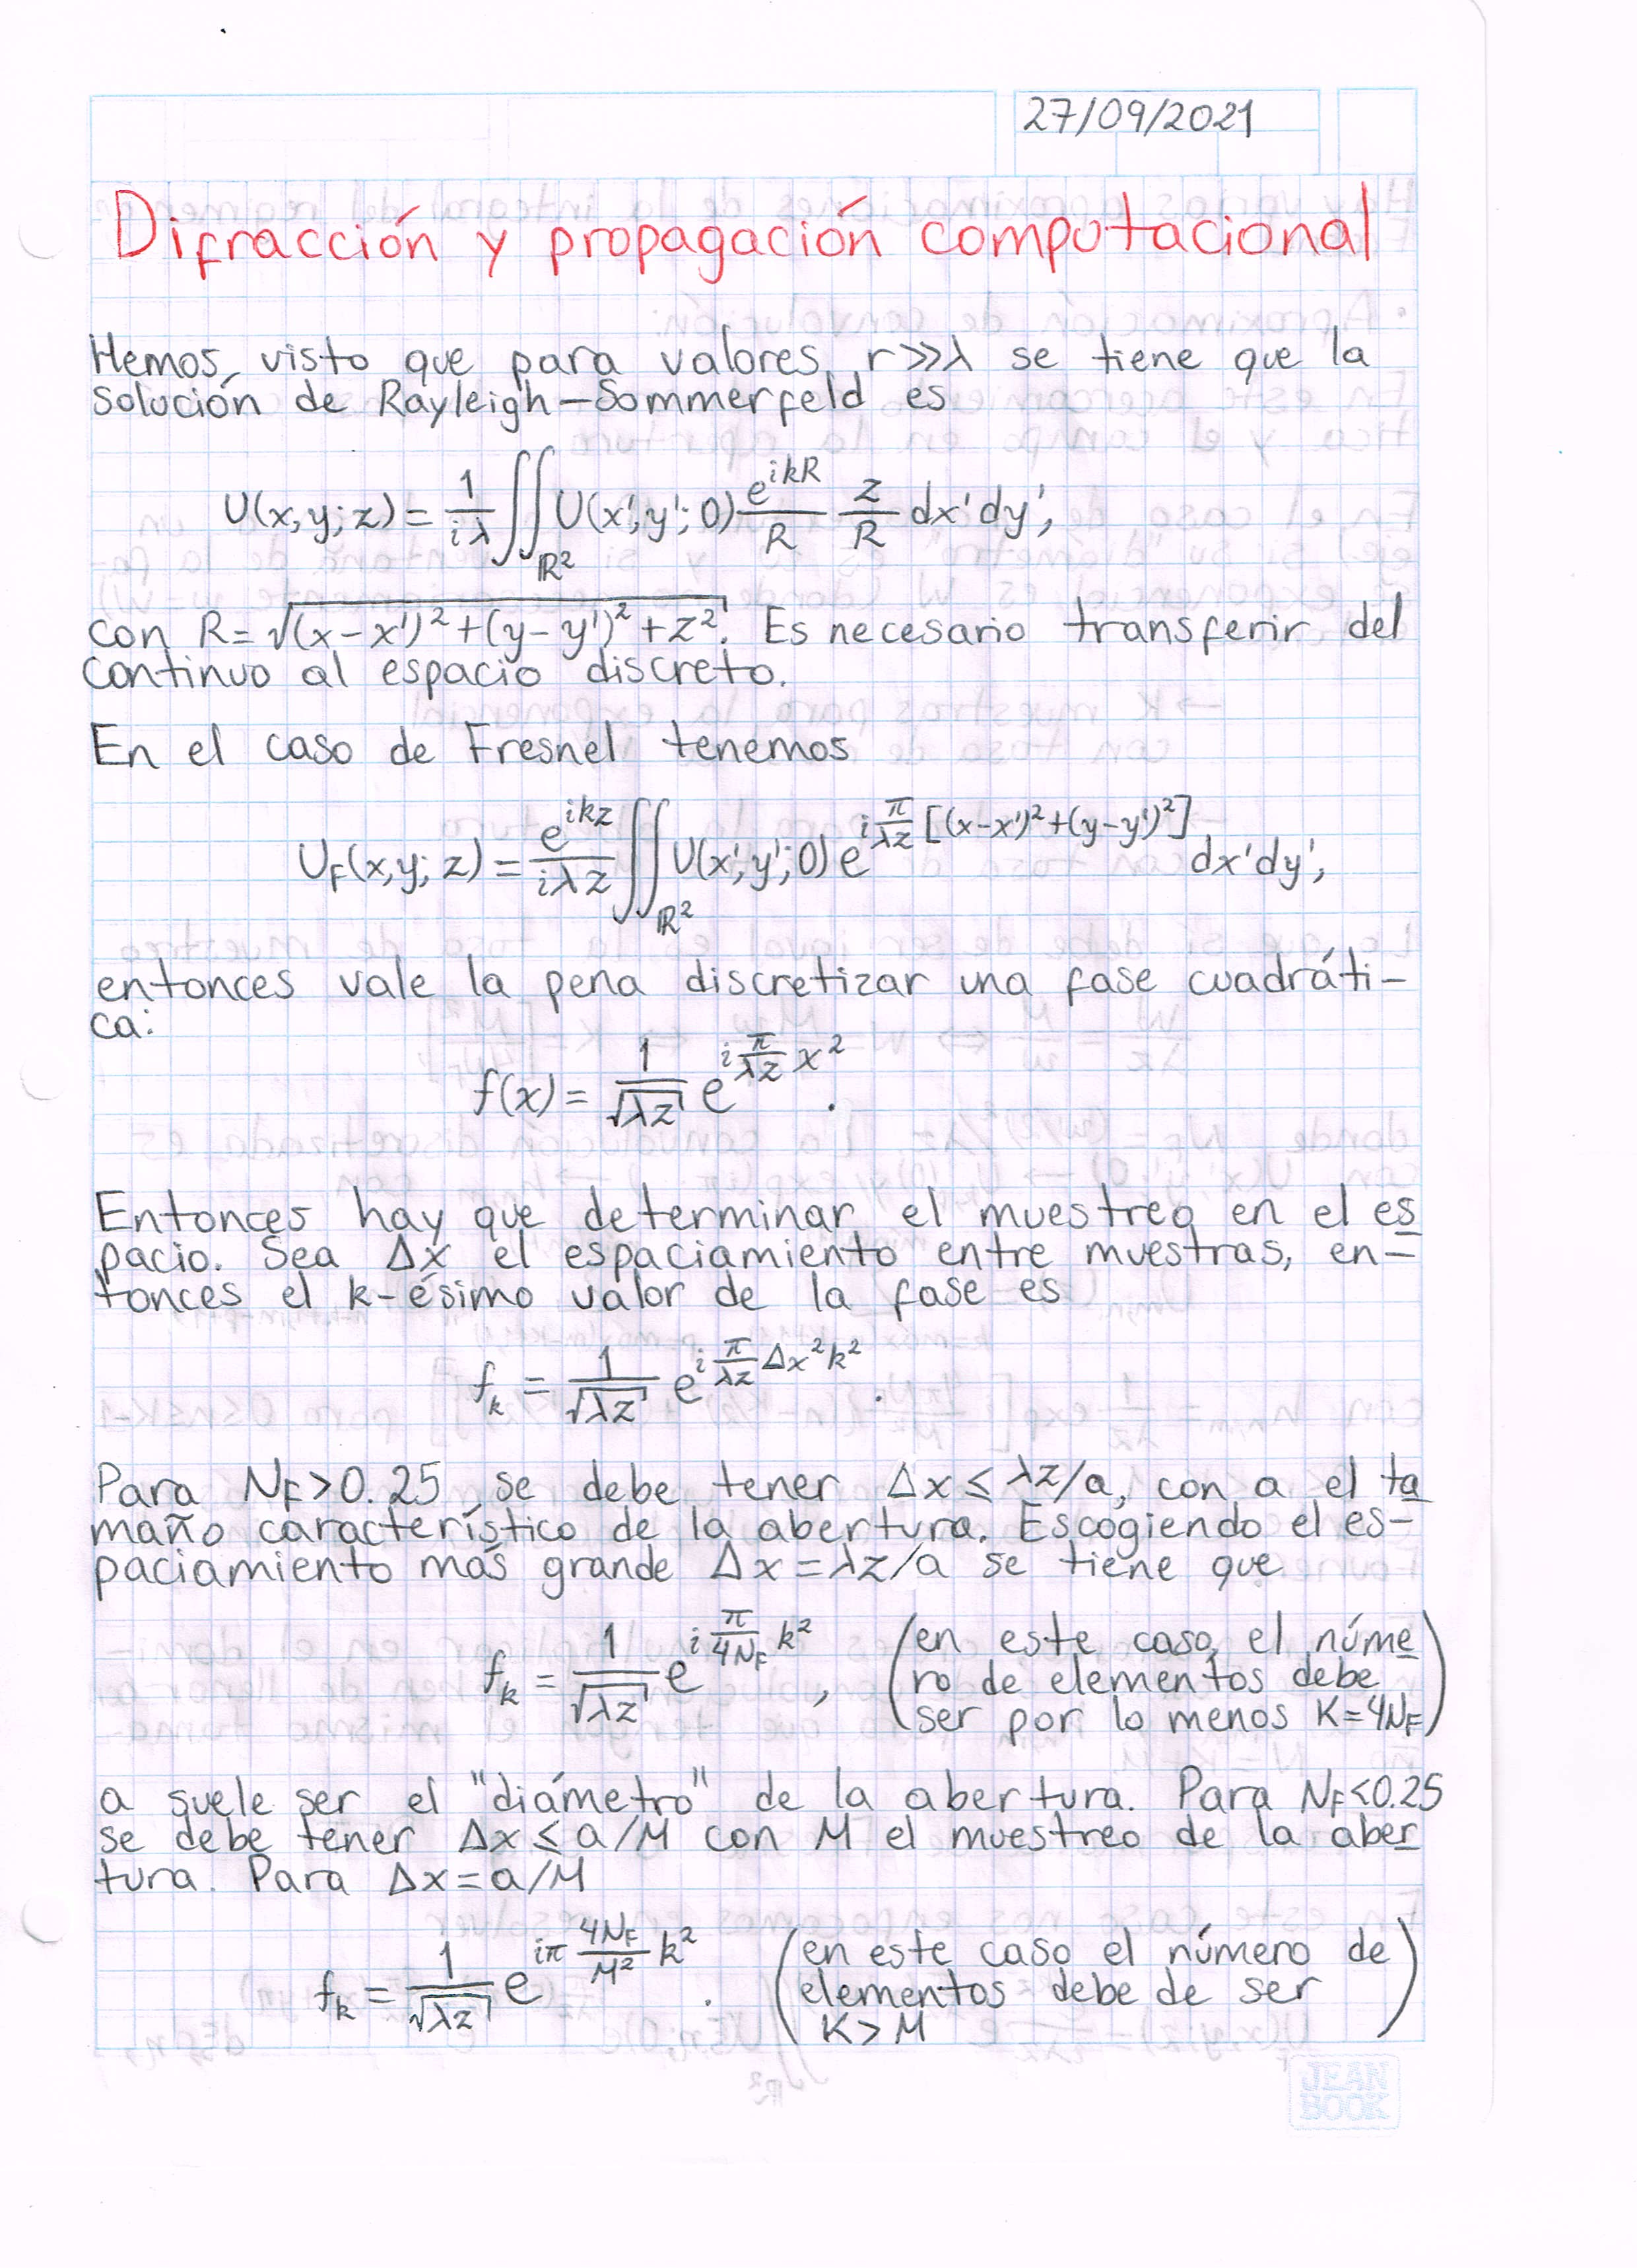 27/09/2021
Difracción y propagación computacional
Hemos visto que para valores r≫λ se tiene que la
solución de Rayleigh-Sommerfeld es
U(x,y;z) = \frac{1}{iλ} ∬_{ℝ²} U(x',y';0) \frac{e^{ikR}}{R} \frac{z}{R} dx'dy',
con R = √((x-x')²+(y-y')²+z²). Es necesario transferir del
continuo al espacio discreto.
En el caso de Fresnel tenemos
U_F(x,y;z) = \frac{e^{ikz}}{iλz} ∬_{ℝ²} U(x',y';0) e^{i\frac{π}{λz}[(x-x')²+(y-y')²]} dx'dy',
entonces vale la pena discretizar una fase cuadráti-
ca:
f(x) = \frac{1}{√(λz)} e^{i\frac{π}{λz}x²}.
Entonces hay que determinar el muestreo en el es
pacio. Sea Δx el espaciamiento entre muestras, en-
tonces el k-ésimo valor de la fase es
f_k = \frac{1}{√(λz)} e^{i\frac{π}{λz}Δx²k²}.
Para N_F>0.25 se debe tener Δx ≤ λz/a, con a el ta
maño característico de la abertura. Escogiendo el es-
paciamiento más grande Δx=λz/a se tiene que
f_k = \frac{1}{√(λz)} e^{i\frac{π}{4N_F}k²},
(en este caso, el núme
ro de elementos debe
ser por lo menos K=4N_F)
a suele ser el "diámetro" de la abertura. Para N_F<0.25
se debe tener Δx ≤ a/M con M el muestreo de la aber
tura. Para Δx=a/M
f_k = \frac{1}{√(λz)} e^{iπ\frac{4N_F}{M²}k²}.
(en este caso el número de
elementos debe de ser
K>M)
JEAN
BOOK